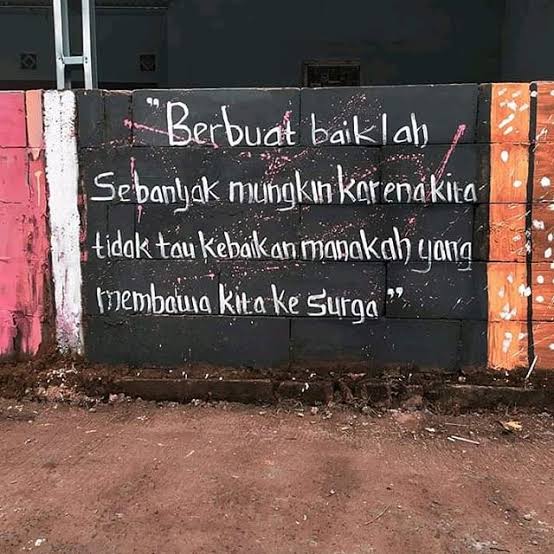 "Berbuat baiklah
Sebanyak mungkin karena kita
tidak tau kebaikan manakah yang
membawa kita ke Surga"